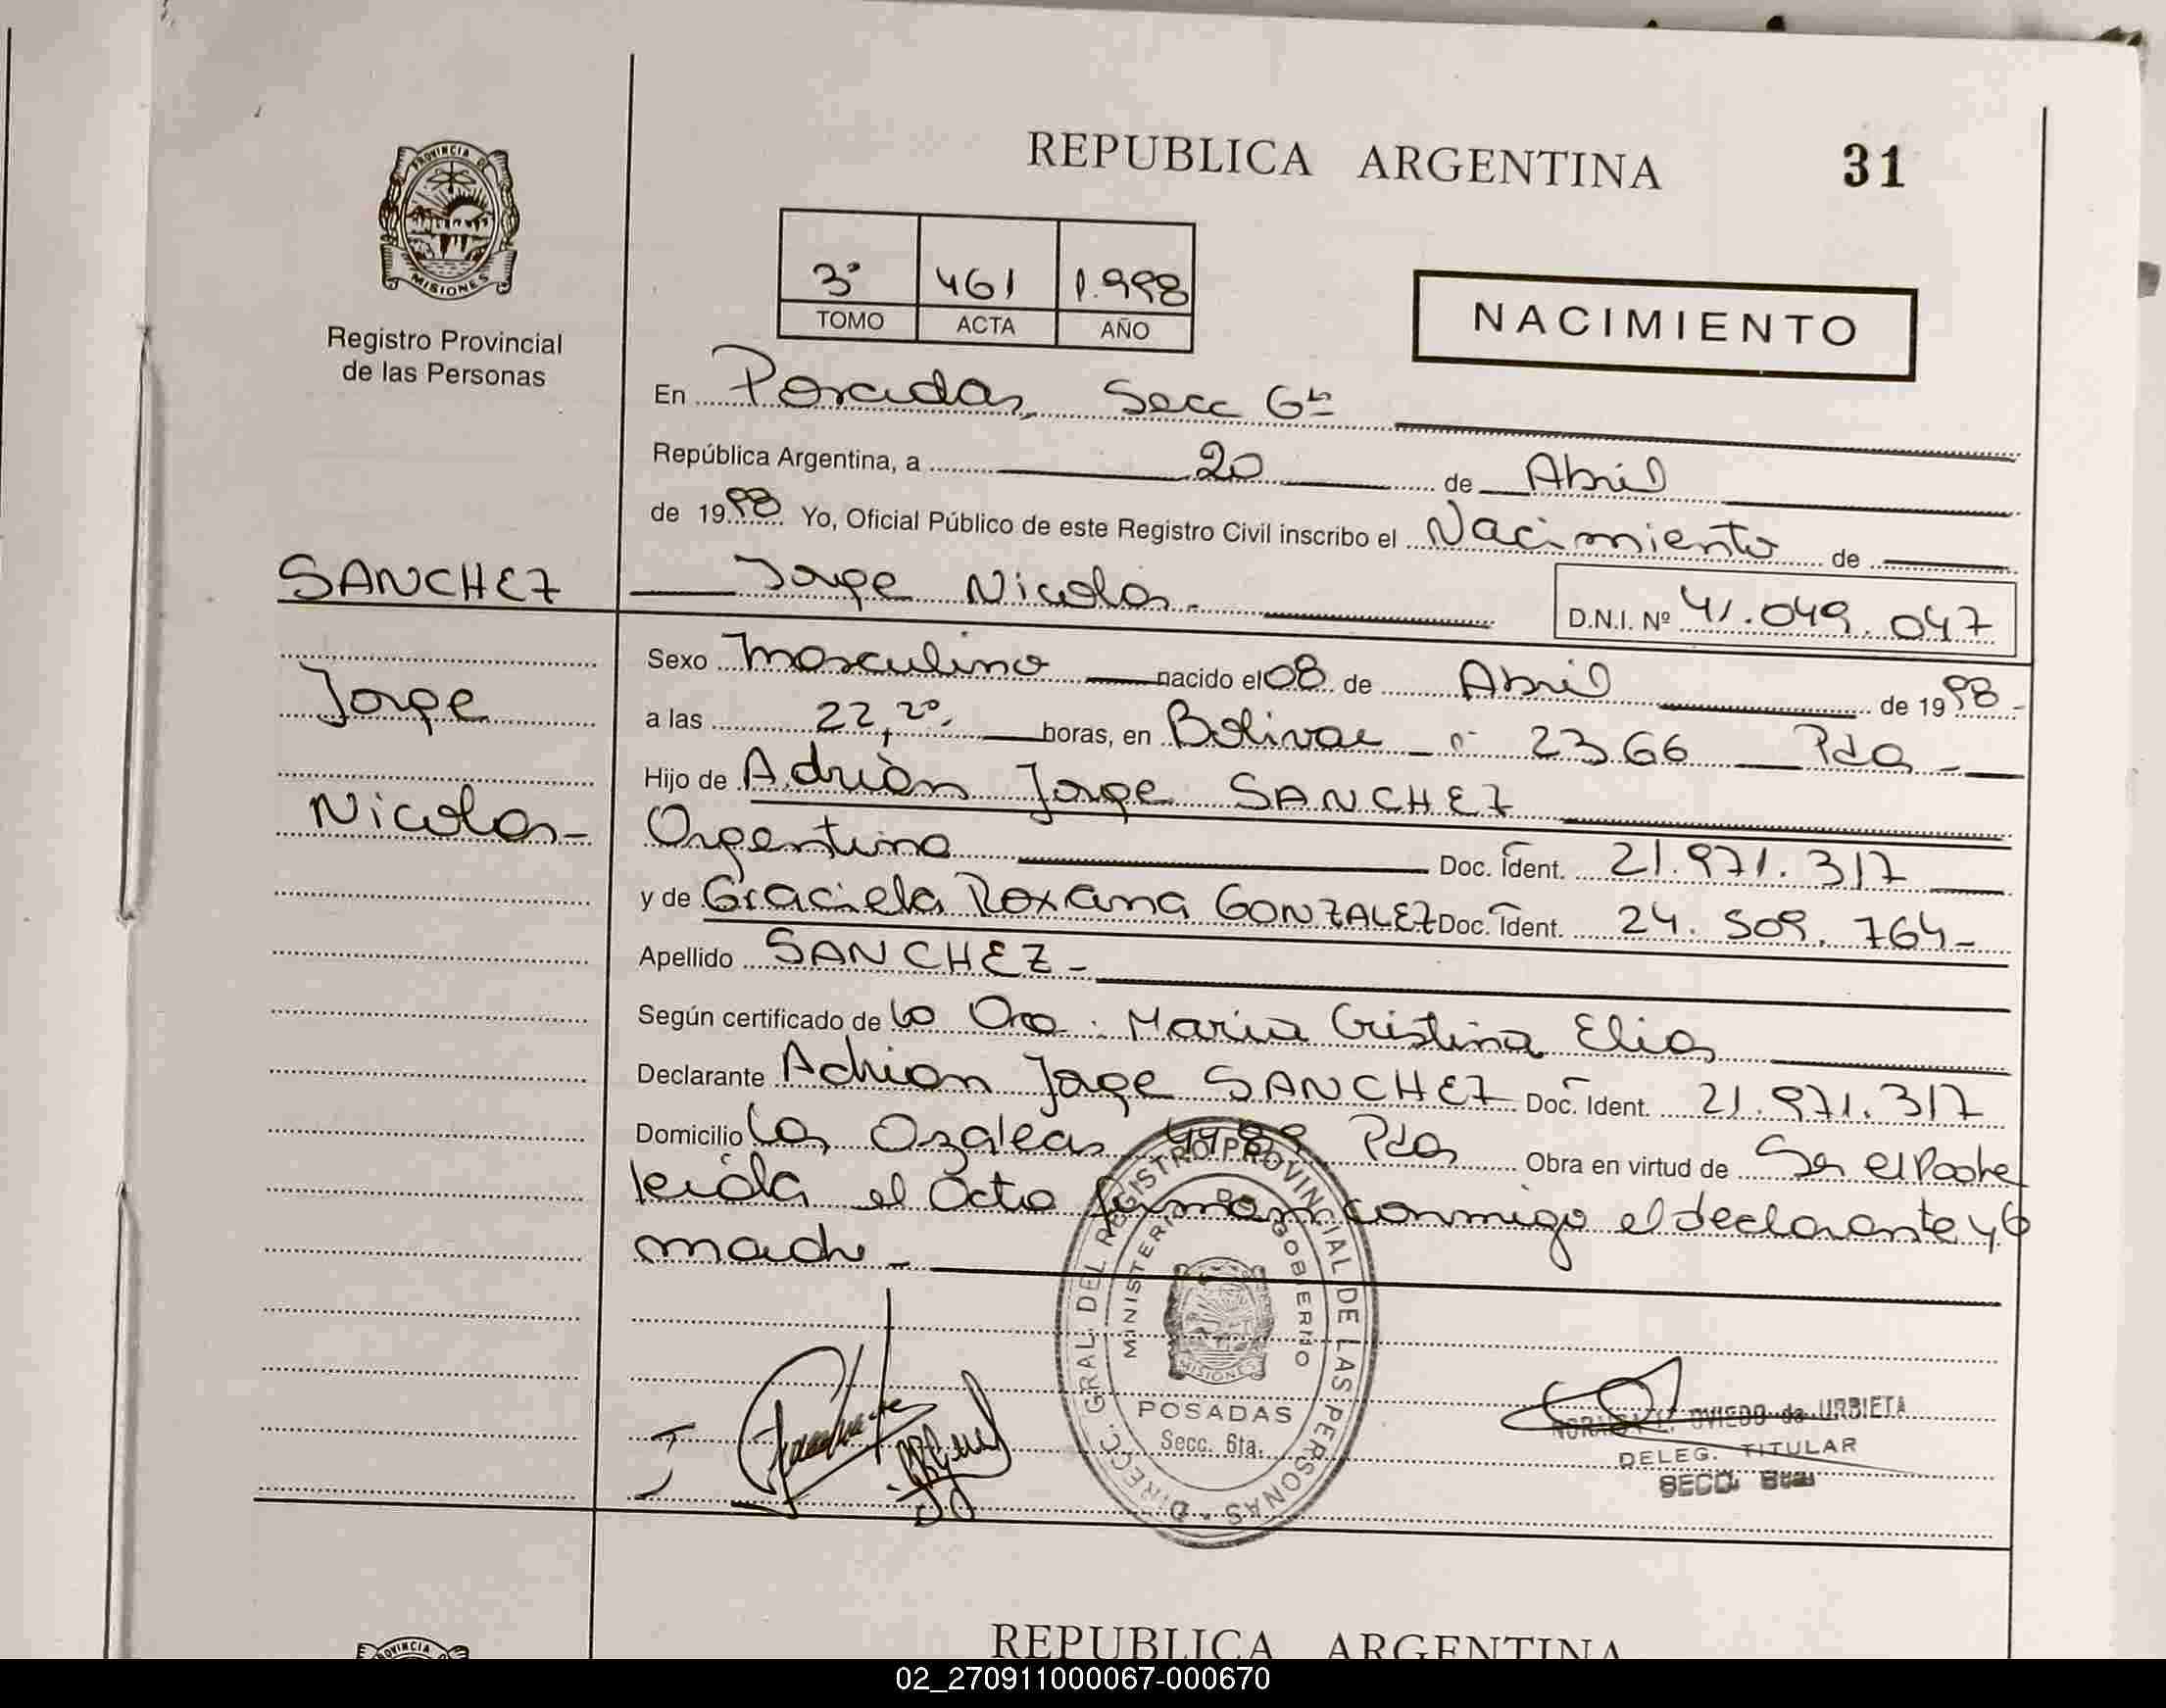 REPUBLICA ARGENTINA 31
PROVINCIA DE
MISIONES
Registro Provincial
de las Personas
3° 461 1.998
TOMO ACTA AÑO
NACIMIENTO
En Posadas, Secc 6ta
República Argentina, a 20 de Abril
de 1998 Yo, Oficial Público de este Registro Civil inscribo el Nacimiento de
SANCHEZ
Jorge Nicolas
D.N.I. Nº 41.049.047
Jorge
Nicolas-
Sexo Masculino nacido el 08 de Abril de 1998-
a las 22,20. horas, en Bolivar n° 2366 Pdas-
Hijo de Adrián Jorge SANCHEZ
Argentino Doc. Ident. 21.971.317
y de Graciela Roxana GONZALEZ Doc. Ident. 24.509.764-
Apellido SANCHEZ-
Según certificado de la Dra. Maria Cristina Elias
Declarante Adrian Jorge SANCHEZ Doc. Ident. 21.971.317
Domicilio Las Azaleas 4489 Pdas Obra en virtud de Ser el Padre
leida el Acta firman conmigo el declarante y la
madre-
DIRECC. GRAL. DEL REGISTRO PROVINCIAL DE LAS PERSONAS
MINISTERIO DE GOBIERNO
MISIONES
POSADAS
Secc. 6ta.
OVIEDO de URBIETA
DELEG. TITULAR
SECC. 6ta
REPUBLICA ARGENTINA
PROVINCIA
02_270911000067-000670